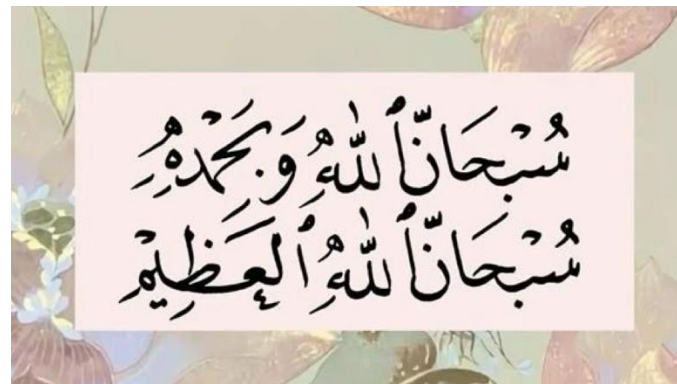 سُبْحَانَّ ٱللّٰهُِ وَبِحَمْدِهُِ
سُبْحَانَّ ٱللّٰهُِ ٱلْعَظِيْمِ